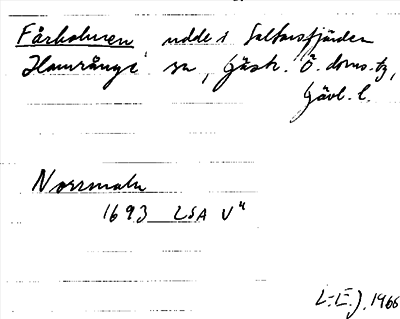 Fårholmen, udde i Saltarsfjärden
Hamrånge sn, Gästr. Ö. doms. tg,
Gävl. l.
Norrmaln
1693 LSA V"
L-E.J. 1966